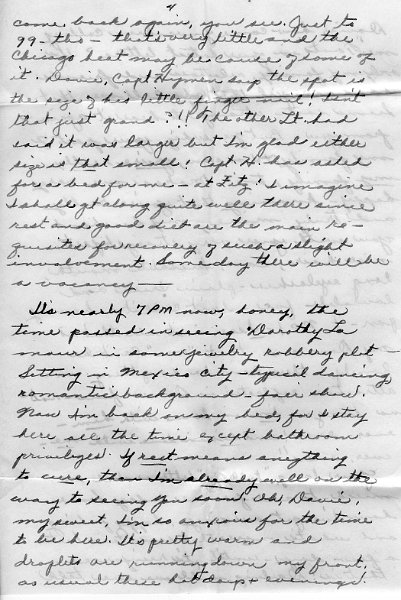 4
come back again, you see. Just to
99 - tho - that's very little and the
Chicago heat may be cause of some of
it. Davie, Capt Hymen says the spot is
the size of his little finger nail! Isn't
that just grand?!! The other Lt. had
said it was larger but I'm glad either
size is that small! Capt H. has asked
for a bed for me - at Fitz! I imagine
I shall get along quite well there since
rest and good diet are the main re-
quisites for recovery of such a slight
involvement. Some day there will be
a vacancy —
It's nearly 7 PM now, honey, the
time passed in seeing "Dorothy La
mour in some jewelry robbery plot -
Setting in Mexico City - typical dancing,
romantic background - fair show.
Now I'm back on my bed, for I stay
here all the time except bathroom
privileges. If rest means anything
to cure, then I'm already well on the
way to seeing you soon. Oh, Davie,
my sweet, I'm so anxious for the time
to be here. It's pretty warm and
droplets are running down my front,
as usual these hot days + evenings.